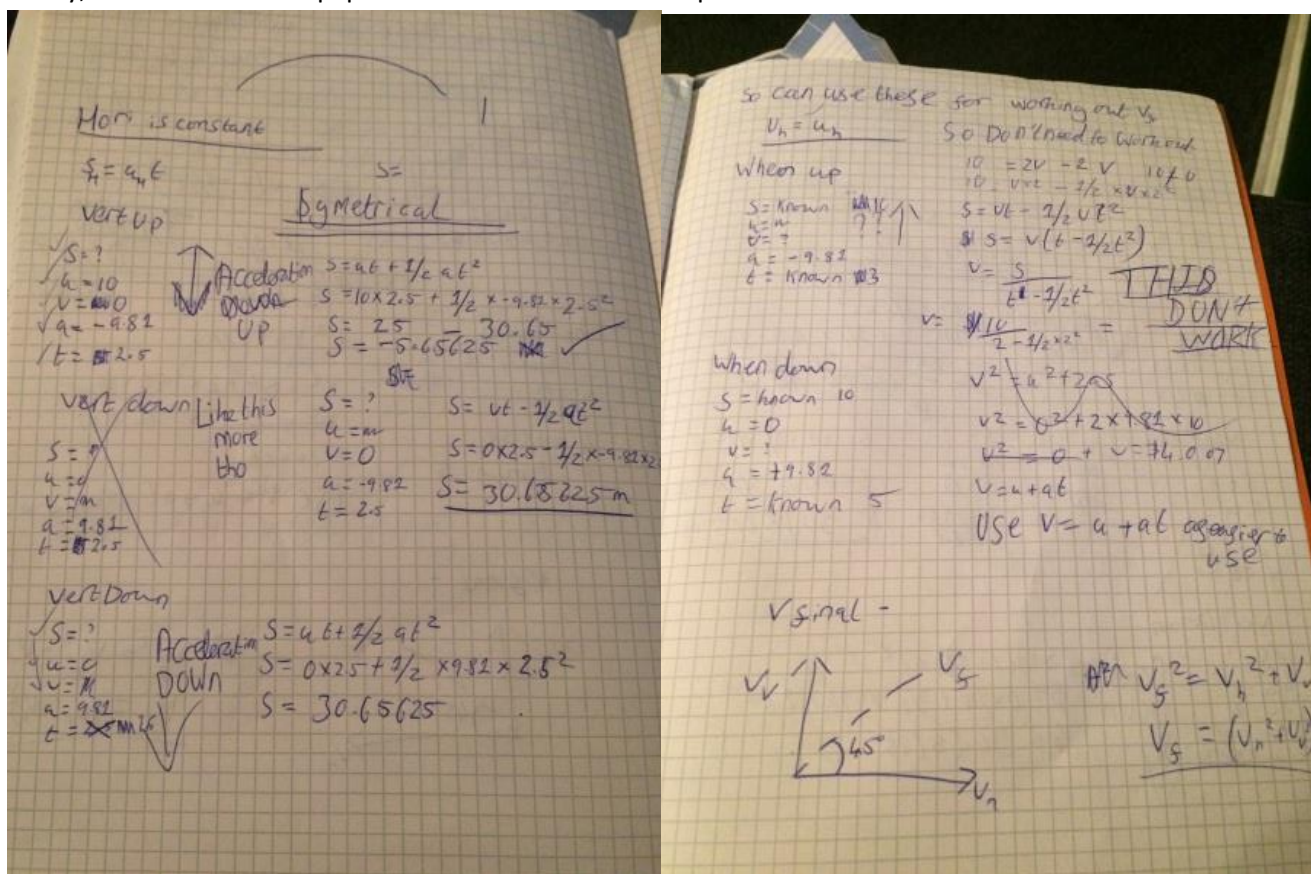 Hori is constant
S_H = u_H t
S=
Symetrical
vert up
S=?
u=10
v=0
a=-9.81
t=2.5
Acceleration
UP
S=ut+1/2 at²
S=10x2.5+1/2x-9.81x2.5²
S= 25 - 30.65
S=-5.65625
vert down
S=
a=9.81
t=2.5
Like this
more
tho
S=?
u=m
v=0
a=-9.81
t=2.5
S=vt-1/2at²
S=0x2.5-1/2x-9.81x2
S=30.65625m
vert Down
S=?
a=9.81
Acceleration
DOWN
S=ut+1/2 at²
S=0x2.5+1/2x9.81x2.5²
S= 30.65625
So can use these for working out V_f
V_h = u_h
So Don't need to workout
When up
S=known
v=?
a=-9.81
t=known 3
10 = 2V - 2V
10 = Vx2 - 1/2 x V x 2²
S=vt-1/2vt²
S=v(t-1/2t²)
v= S / t - 1/2t²
v= 10 / 2-1/2x2² =
THIS
DON'T
WORK
When down
S=known 10
u=0
v=?
a=+9.81
t=known 5
v²=u²+2as
v²=0²+2x9.81x10
v²=0+ v=14.007
V=u+at
Use V=u+at as easier to
use
V final -
V_v
V_f
45°
V_h
V_f²=V_h²+V_v
V_f=(V_h²+V_v²)